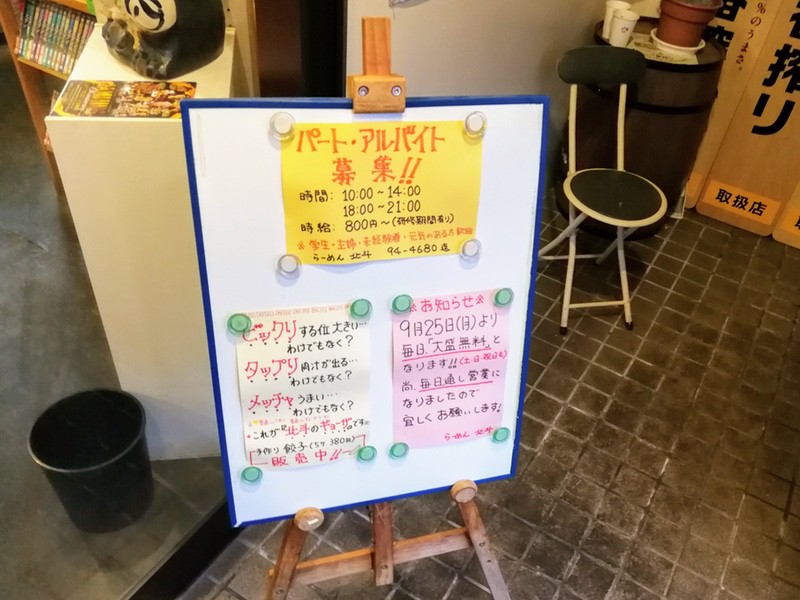 パート・アルバイト
募集!!
時間: 10:00～14:00
18:00～21:00
時給: 800円～(研修期間有り)
※ 学生・主婦・未経験者・元気のある方歓迎
らーめん 北斗 94-4680迄
ビックリする位大きい…
わけでもなく?
タップリ肉汁が出る…
わけでもなく?
メッチャうまい…
わけでもなく?
これが北斗のギョーザです!!
手作り餃子(5ケ 380円)
販売中!!
※お知らせ※
9月25日(月)より
毎日、「大盛無料」と
なります!!(土・日・祝日も)
尚、毎日通し営業に
なりましたので
宜しくお願いします!
らーめん 北斗
%のうまさ。
搾り
取扱店